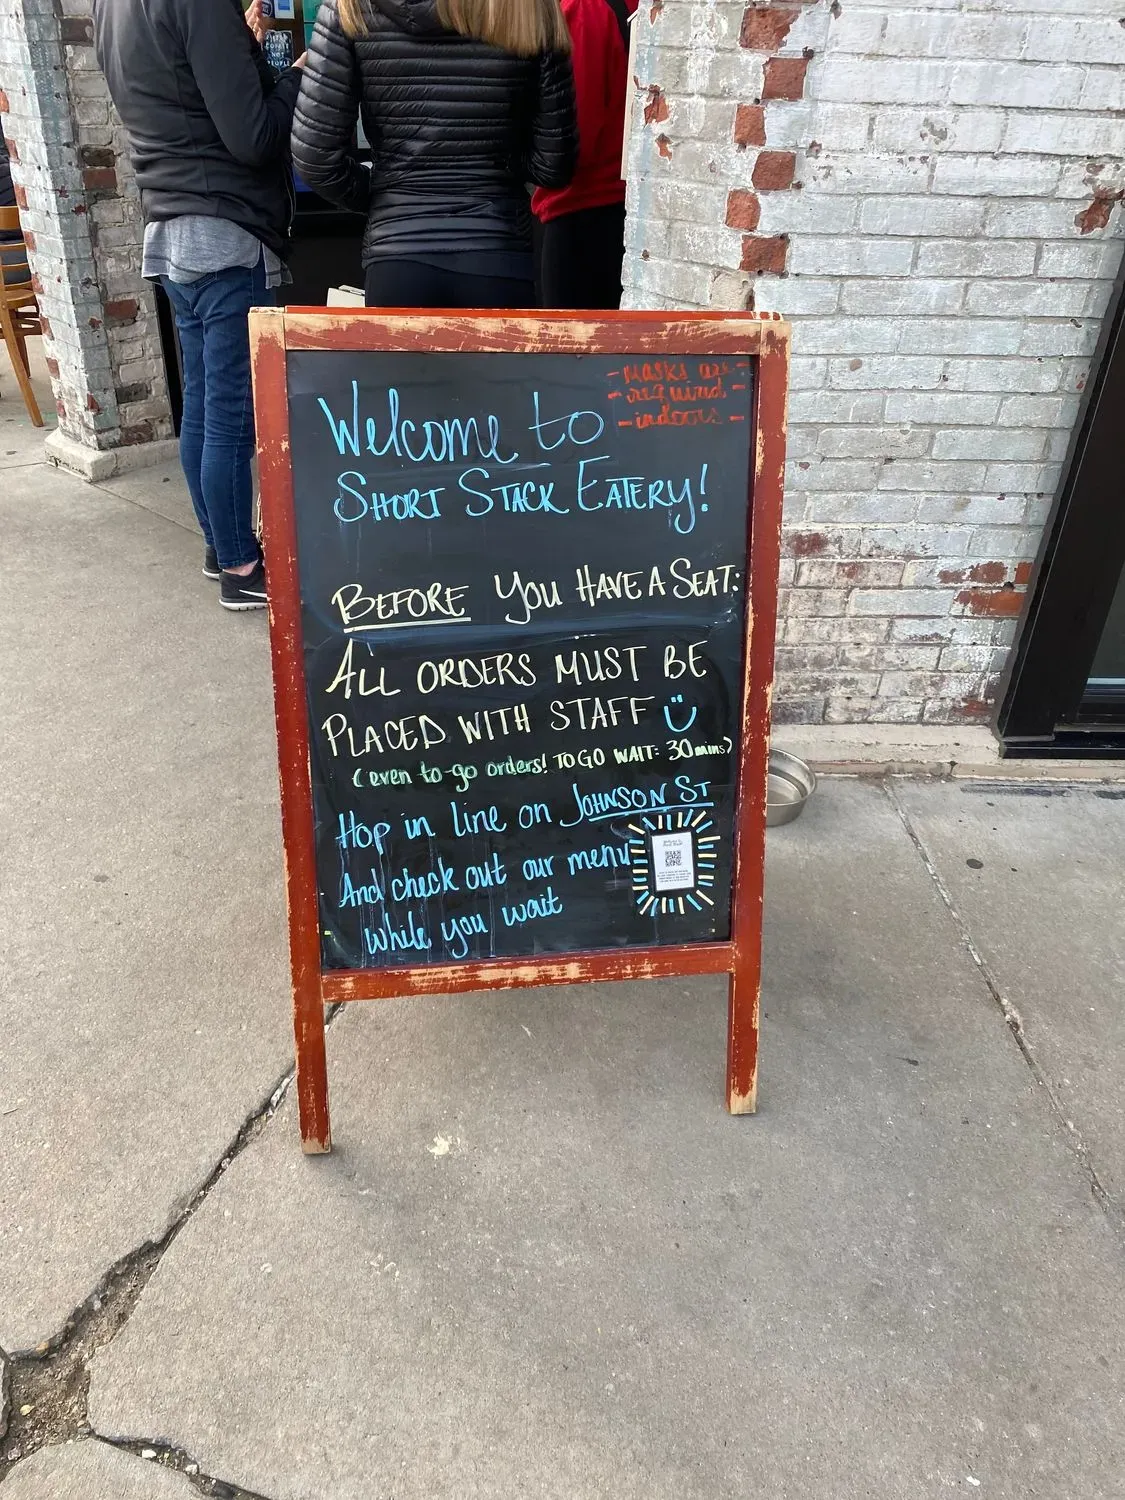 - masks are -
- required -
- indoors -
Welcome to
SHORT STACK EATERY!
BEFORE YOU HAVE A SEAT:
ALL ORDERS MUST BE
PLACED WITH STAFF
(even to-go orders! TO GO WAIT: 30 mins)
Hop in line on JOHNSON ST
And check out our menu
while you wait